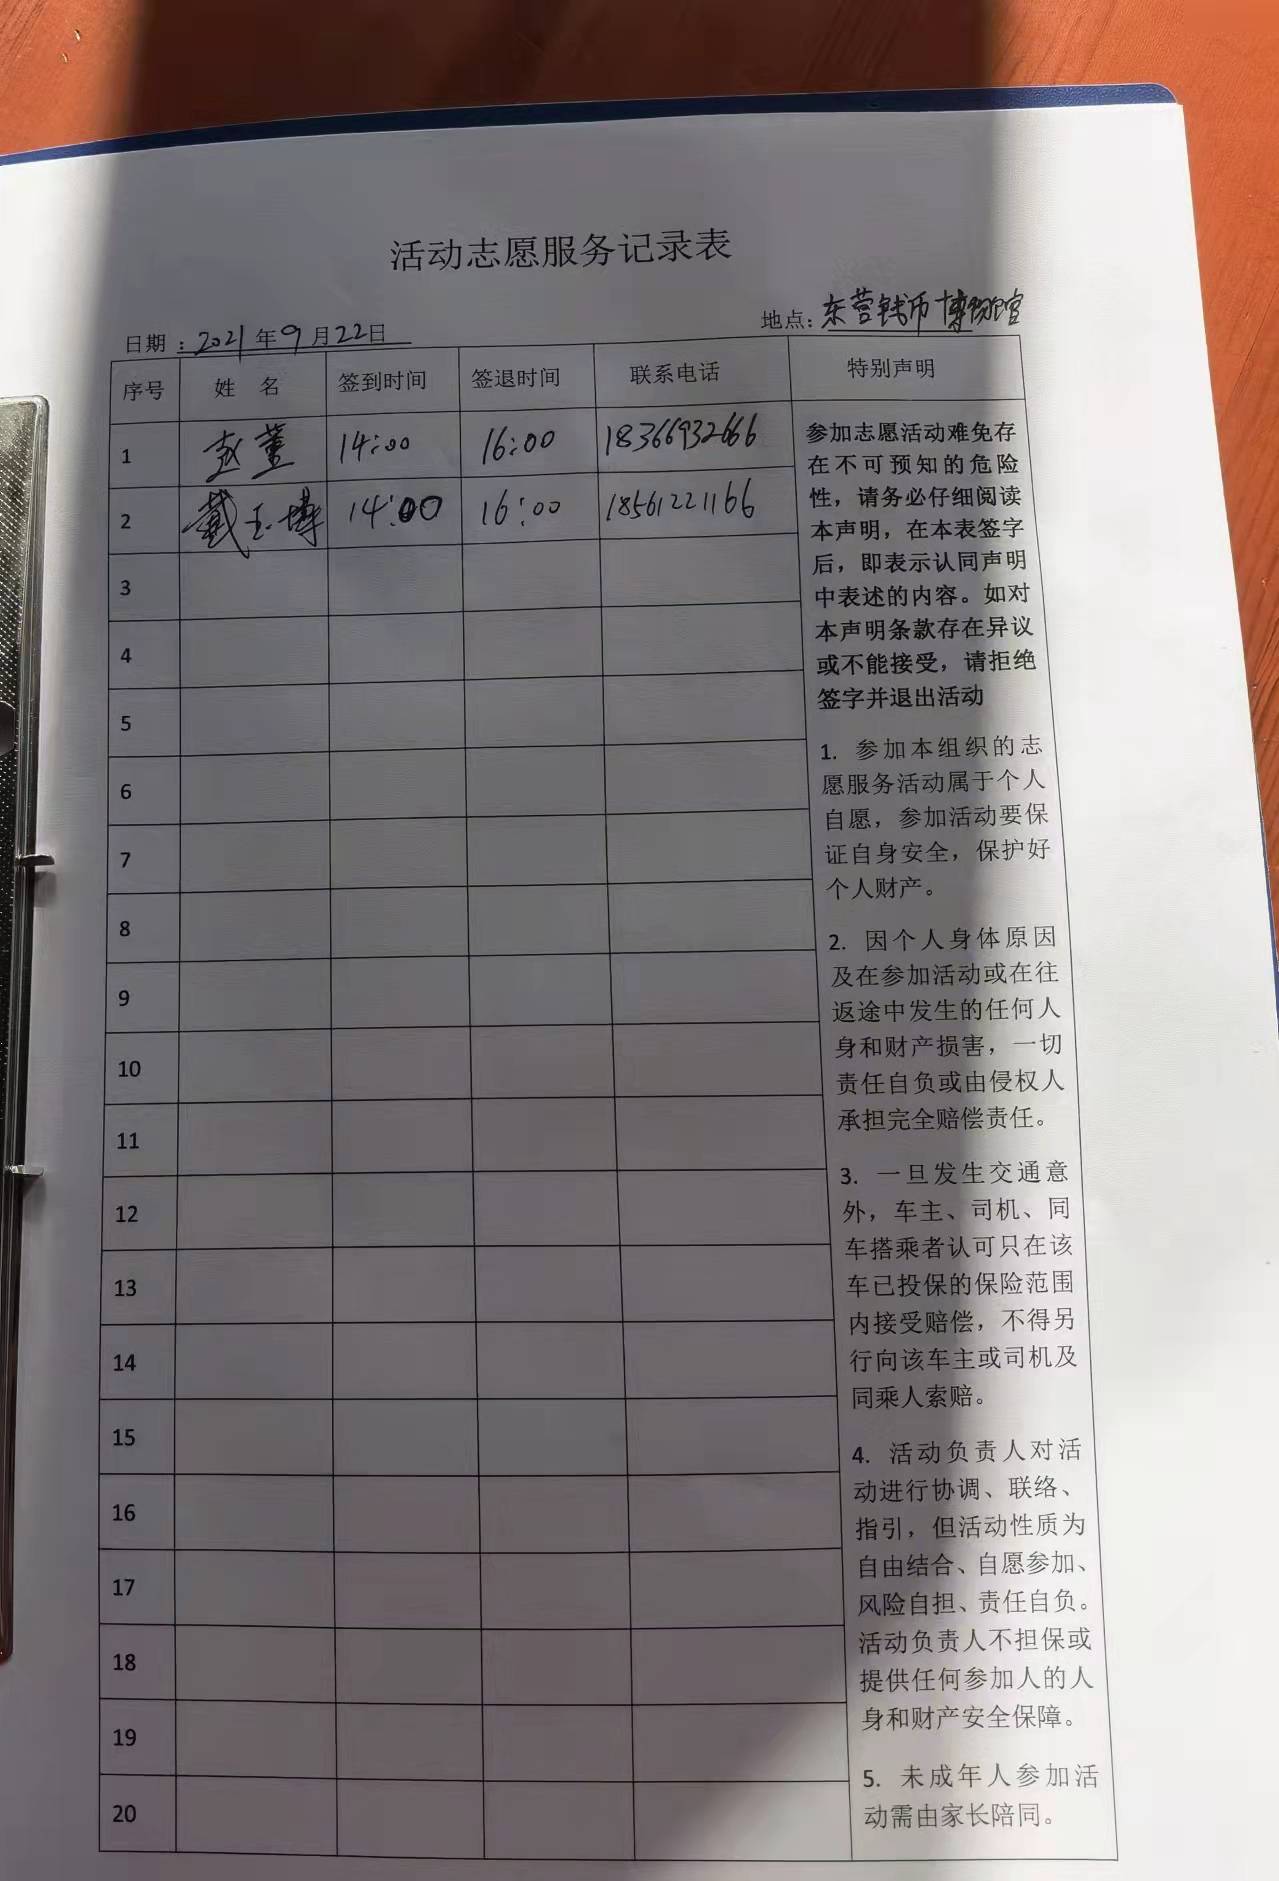 活动志愿服务记录表
日期：2021年9月22日 地点：东营钱币博物馆
序号 姓 名 签到时间 签退时间 联系电话 特别声明
1 赵萱 14:00 16:00 18366932666
2 戴玉博 14:00 16:00 18561221166
3
4
5
6
7
8
9
10
11
12
13
14
15
16
17
18
19
20
参加志愿活动难免存
在不可预知的危险
性，请务必仔细阅读
本声明，在本表签字
后，即表示认同声明
中表述的内容。如对
本声明条款存在异议
或不能接受，请拒绝
签字并退出活动
1. 参加本组织的志
愿服务活动属于个人
自愿，参加活动要保
证自身安全，保护好
个人财产。
2. 因个人身体原因
及在参加活动或在往
返途中发生的任何人
身和财产损害，一切
责任自负或由侵权人
承担完全赔偿责任。
3. 一旦发生交通意
外，车主、司机、同
车搭乘者认可只在该
车已投保的保险范围
内接受赔偿，不得另
行向该车主或司机及
同乘人索赔。
4. 活动负责人对活
动进行协调、联络、
指引，但活动性质为
自由结合、自愿参加、
风险自担、责任自负。
活动负责人不担保或
提供任何参加人的人
身和财产安全保障。
5. 未成年人参加活
动需由家长陪同。